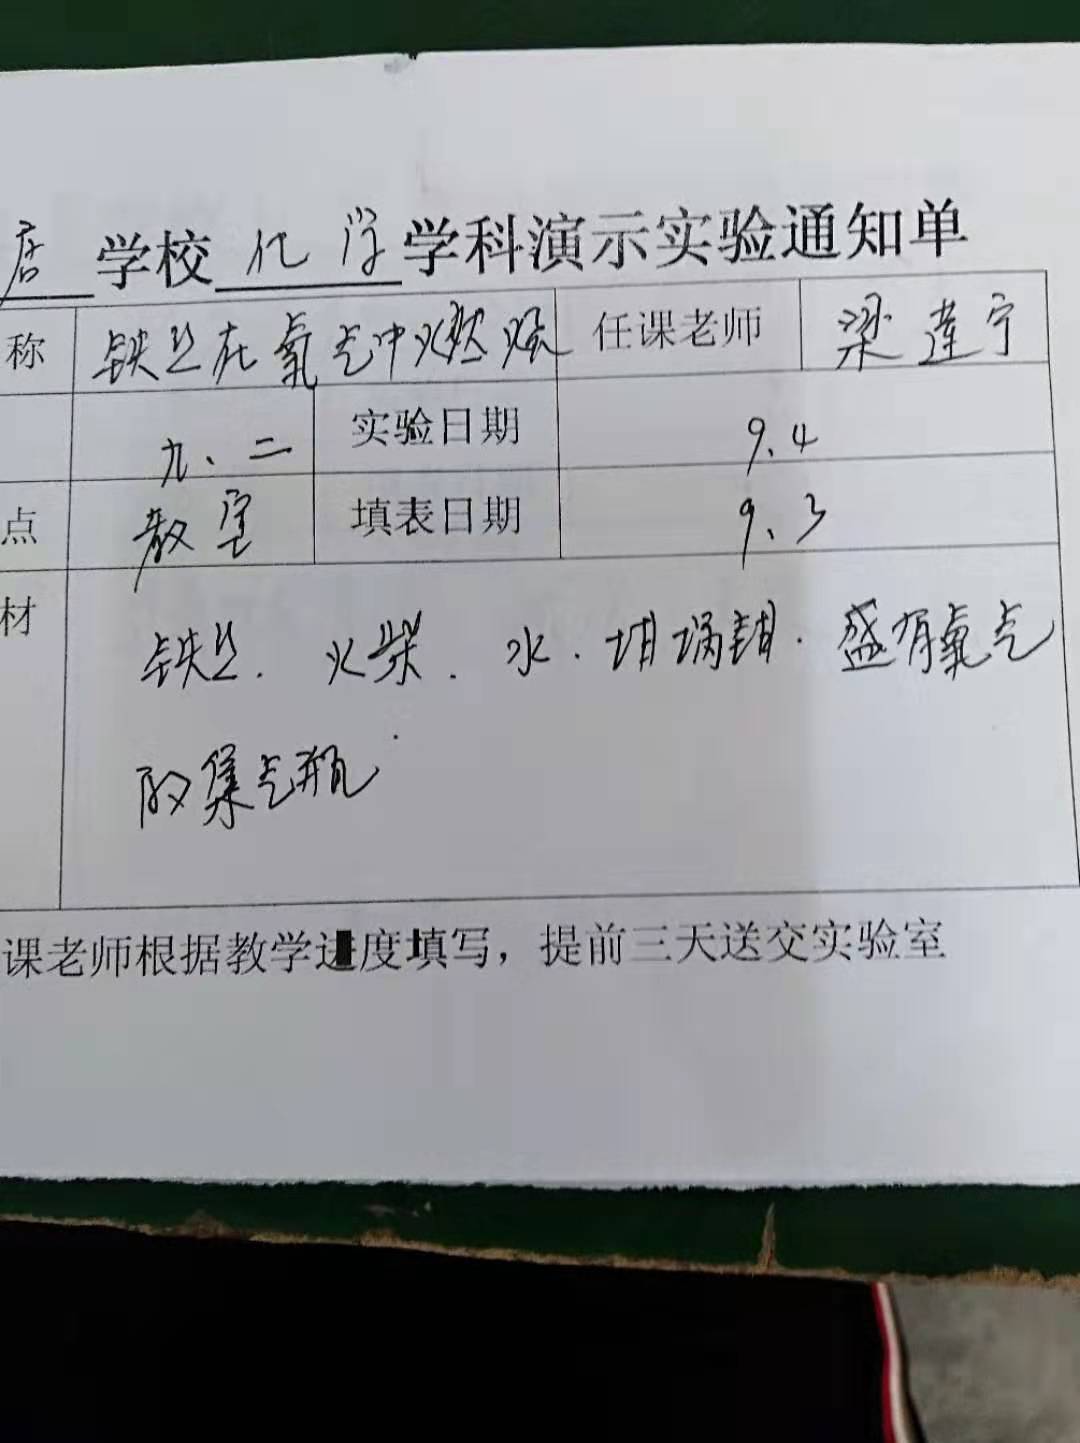 店 学校 化学 学科演示实验通知单
称 铁丝在氧气中燃烧 任课老师 梁莲宁
九、二 实验日期 9.4
点 教室 填表日期 9.3
材 铁丝. 火柴. 水. 坩埚钳. 盛有氧气
的集气瓶
课老师根据教学进度填写，提前三天送交实验室